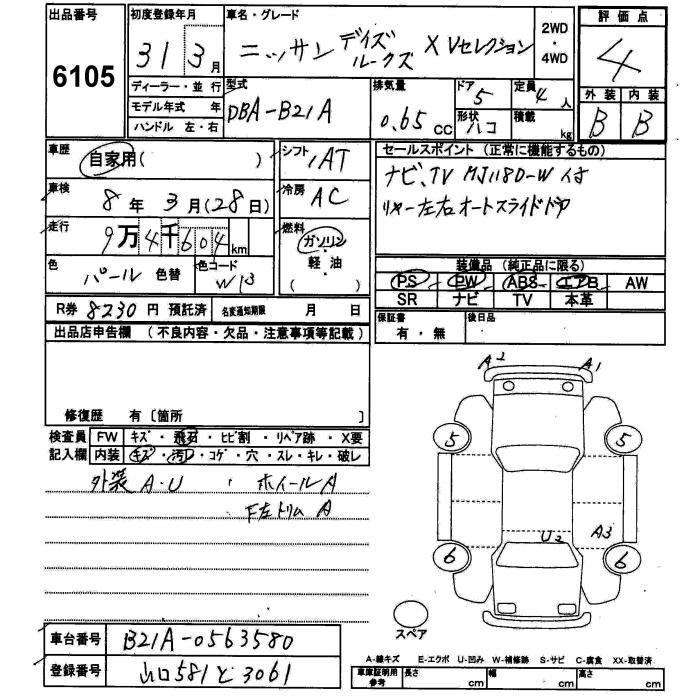 出品番号
6105
初度登録年月
31 3月
車名・グレード
ニッサン デイズルークス X Vセレクション
2WD
・
4WD
評価点
4
外装 内装
B B
ディーラー・並行
モデル年式 年
ハンドル 左・右
型式
DBA-B21A
排気量
0.65 CC
ドア
5
定員
4人
形状
ハコ
積載
kg
車歴
自家用( )
シフト
AT
車検
8年 3月(28日)
冷房
AC
走行
9万4千604km
燃料
ガソリン
・
軽・油
( )
色
パール 色替
色コード
W13
R券 8230円 預託済
名変通知期限 月 日
セールスポイント (正常に機能するもの)
ナビ、TV MJ118D-W 付
リヤー左右オートスライドドア
装備品 (純正品に限る)
PS PW ABS エアB AW
SR ナビ TV 本革
保証書
有・無
後日品
出品店申告欄 (不良内容・欠品・注意事項等記載)
修復歴 有〔箇所 〕
検査員
記入欄
FW キズ・飛石・ヒビ割・リペア跡・X要
内装 キズ・汚れ・コゲ・穴・スレ・キレ・破レ
外装 A・U ホイールA
F左トリム A
A2 A1
5 5
U2 A3
6 6
スペア
車台番号 B21A-0563580
登録番号 山口581と3061
A-線キズ E-エクボ U-凹み W-補修跡 S-サビ C-腐食 XX-取替済
車庫証明用
参考
長さ cm 幅 cm 高さ cm